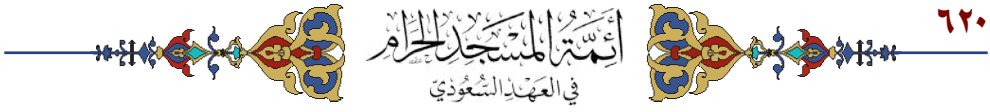 ٦٢٠
أَئِمَّةُ المَسْجِدِ الحَرَامِ
فِي العَهْدِ السُّعُودِيِّ